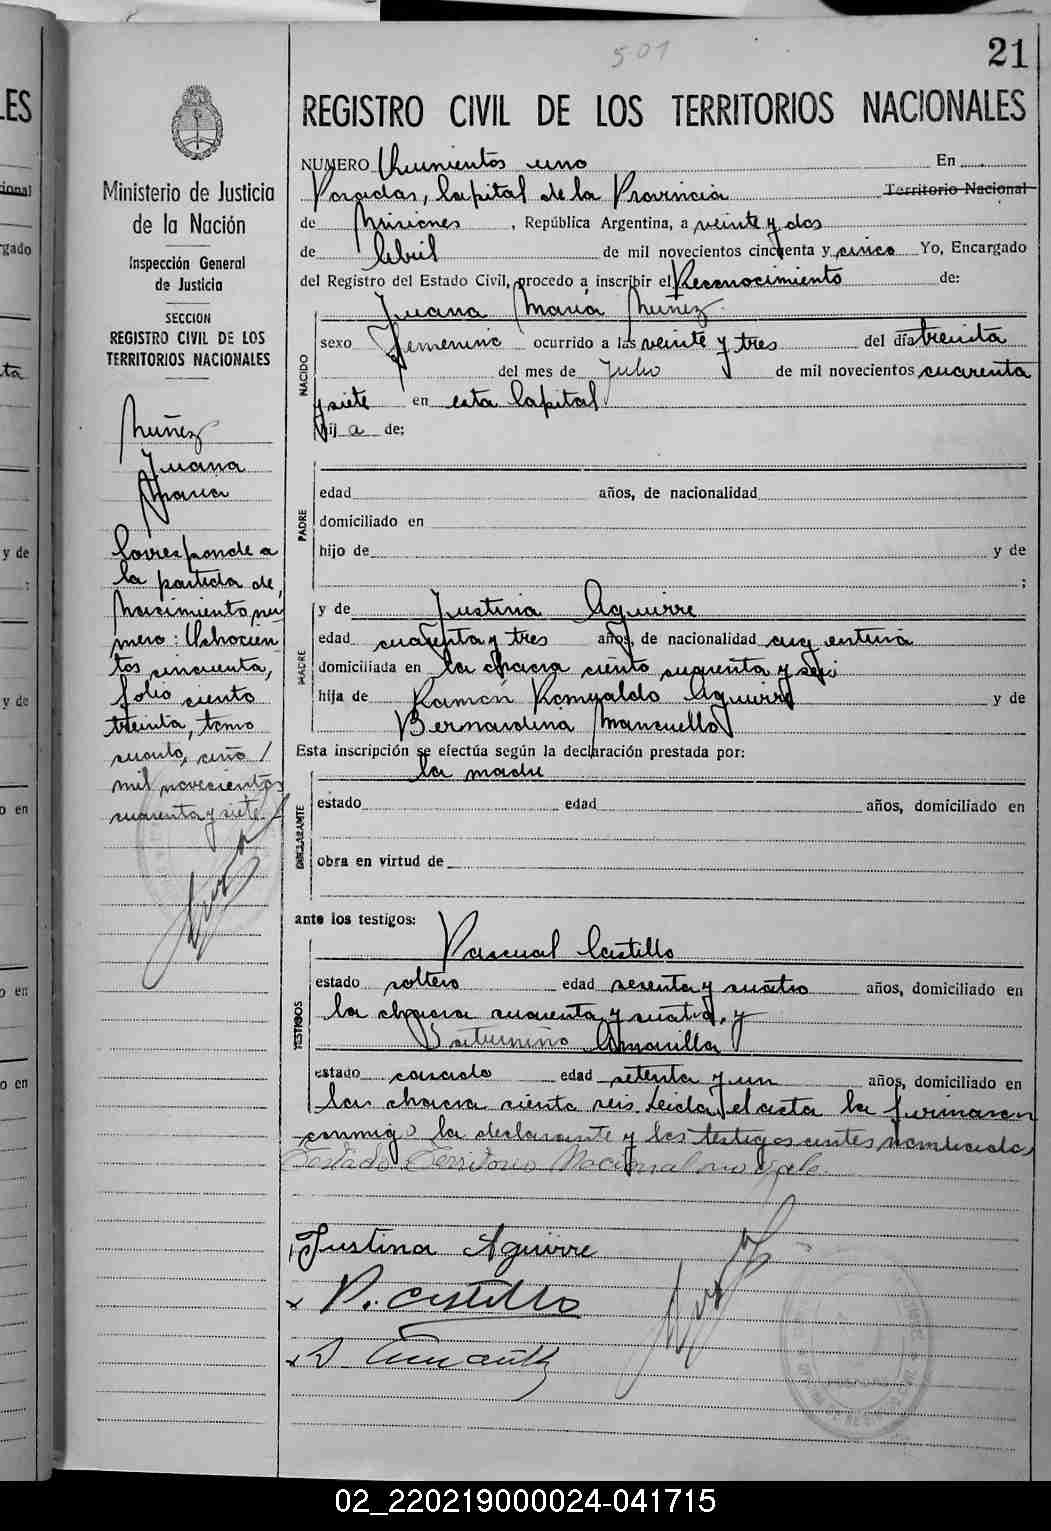 501
21
LES
REGISTRO CIVIL DE LOS TERRITORIOS NACIONALES
NUMERO Quinientos uno En
Posadas, Capital de la Provincia Territorio Nacional
de Misiones, República Argentina, a veinte y dos
de Abril de mil novecientos cincuenta y cinco Yo, Encargado
del Registro del Estado Civil, procedo a inscribir el Reconocimiento de:
Juana María Núñez
NACIDO
sexo femenino ocurrido a las veinte y tres del día treinta
del mes de Julio de mil novecientos cuarenta
y siete en esta Capital
hij a de:
PADRE
edad años, de nacionalidad
domiciliado en
hijo de y de
;
MADRE
y de Justina Aguirre
edad cuarenta y tres años, de nacionalidad argentina
domiciliada en la chacra ciento cuarenta y seis
hija de Ramón Romualdo Aguirre y de
Bernardina Mancuello
Esta inscripción se efectúa según la declaración prestada por:
la madre
DECLARANTE
estado edad años, domiciliado en
obra en virtud de
ante los testigos:
Pascual Castillo
TESTIGOS
estado soltero edad sesenta y cuatro años, domiciliado en
la chacra cuarenta y cuatro, y
Saturnino Amarilla
estado casado edad setenta y un años, domiciliado en
la chacra ciento seis. Leida el acta la firmaron
conmigo la declarante y los testigos antes nombrados
Testado Territorio Nacional no vale.
Justina Aguirre
x P. Castillo
x S
Ministerio de Justicia
de la Nación
Inspección General
de Justicia
SECCION
REGISTRO CIVIL DE LOS
TERRITORIOS NACIONALES
Núñez
Juana
María
Corresponde a
la partida de
Nacimiento nú
mero: Ochocien
tos cincuenta,
folio ciento
treinta, tomo
cuarto, año /
mil novecientos
cuarenta y siete.
ional
rgado
ta
y de
;
y de
o en
o en
o en
02_220219000024-041715